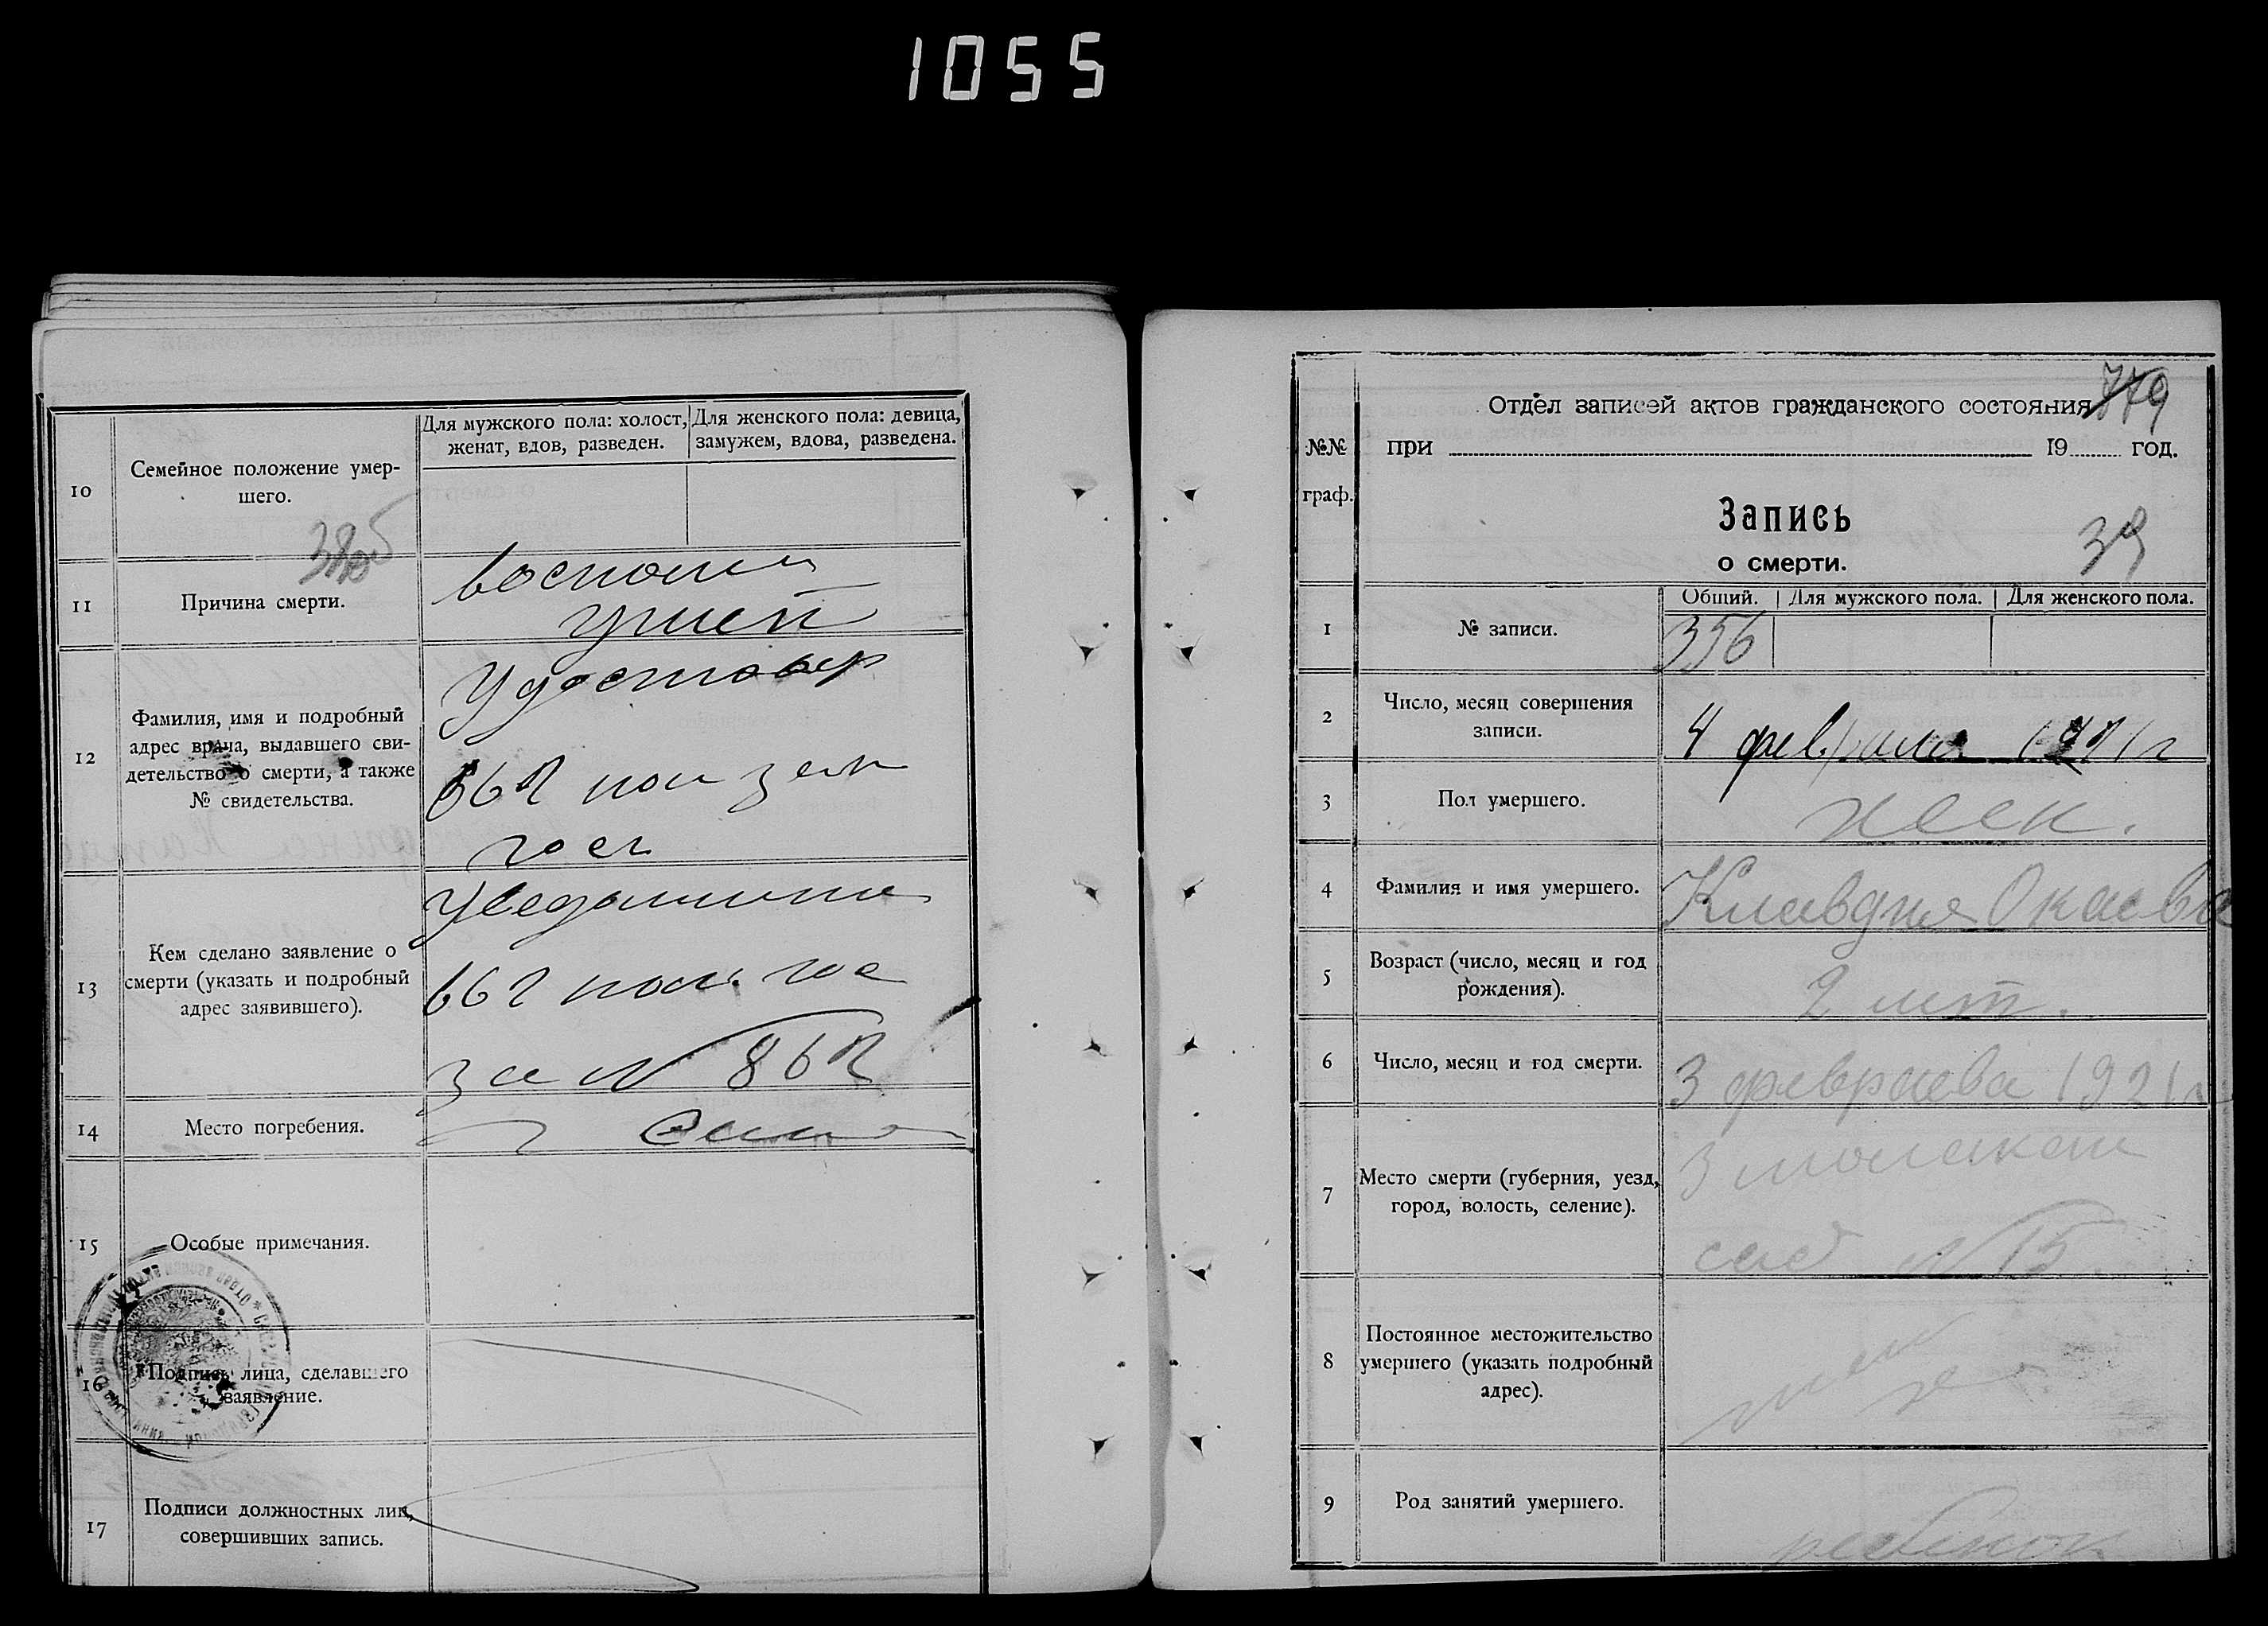 1055
10
Семейное положение умер-
шего.
Для мужского пола: холост,
женат, вдов, разведен.
Для женского пола: девица,
замужем, вдова, разведена.
11
Причина смерти.
ушей
12
Фамилия, имя и подробный
адрес врача, выдавшего сви-
детельство о смерти, а также
№ свидетельства.
Удостовер
662
13
Кем сделано заявление о
смерти (указать и подробный
адрес заявившего).
662
за N 862
14
Место погребения.
15
Особые примечания.
16
Подпись лица, сделавшего
заявление.
17
Подписи должностных лиц,
совершивших запись.
779
Отдел записей актов гражданского состояния
№№
граф.
при 19 год.
Запись
о смерти.
39
1
№ записи.
Общий. Для мужского пола. Для женского пола.
356
2
Число, месяц совершения
записи.
4 февраля 1921 г
3
Пол умершего.
жен.
4
Фамилия и имя умершего.
Клавдия Окаева
5
Возраст (число, месяц и год
рождения).
2 лет.
6
Число, месяц и год смерти.
3 февраля 1921 г
7
Место смерти (губерния, уезд,
город, волость, селение).
сад N 15
8
Постоянное местожительство
умершего (указать подробный
адрес).
9
Род занятий умершего.
ребенок